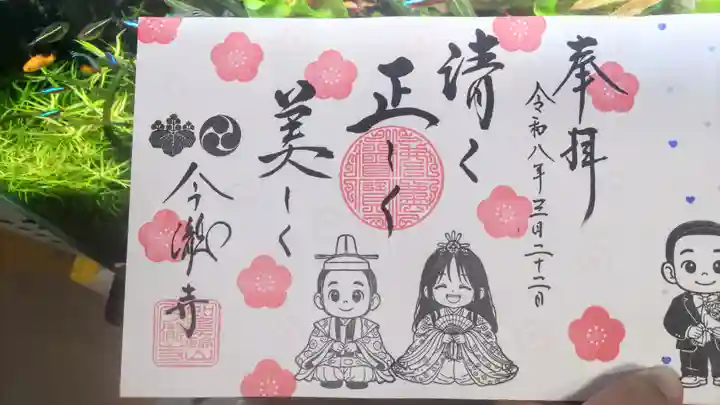 奉拝
令和八年三月二十二日
清く
正しく
美しく
今瀧寺